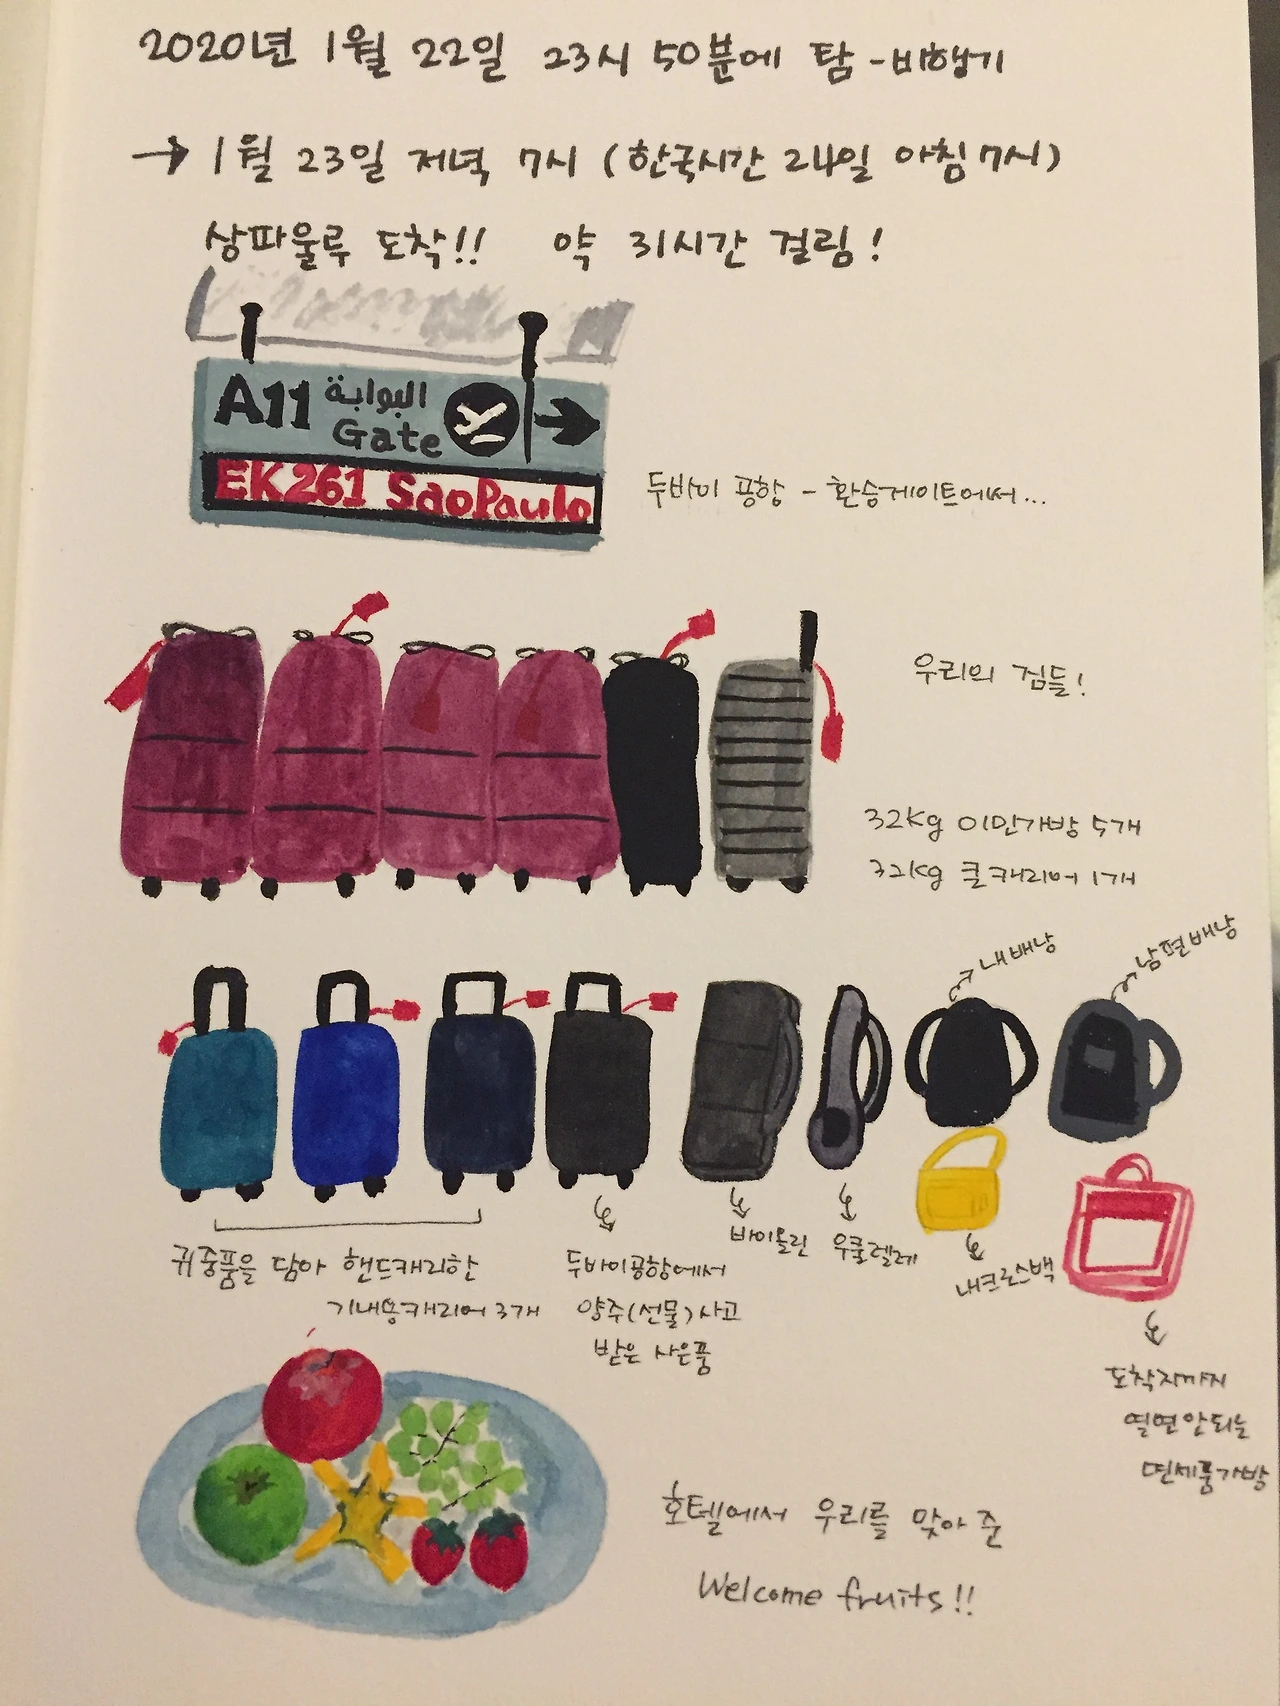 2020년 1월 22일 23시 50분에 탐 - 비행기
→ 1월 23일 저녁 7시 (한국시간 24일 아침 7시)
상파울루 도착!! 약 31시간 걸림!
A11 البوابة
Gate
EK261 SaoPaulo
두바이 공항 - 환승게이트에서...
우리의 짐들!
32kg 이민가방 5개
32kg 큰캐리어 1개
내 배낭
남편배낭
귀중품을 담아 핸드캐리한
기내용캐리어 3개
두바이공항에서
양주(선물)사고
받은 사은품
바이올린
우쿨렐레
내크로스백
도착지까지
열면안되는
면세품가방
호텔에서 우리를 맞아 준
Welcome fruits!!